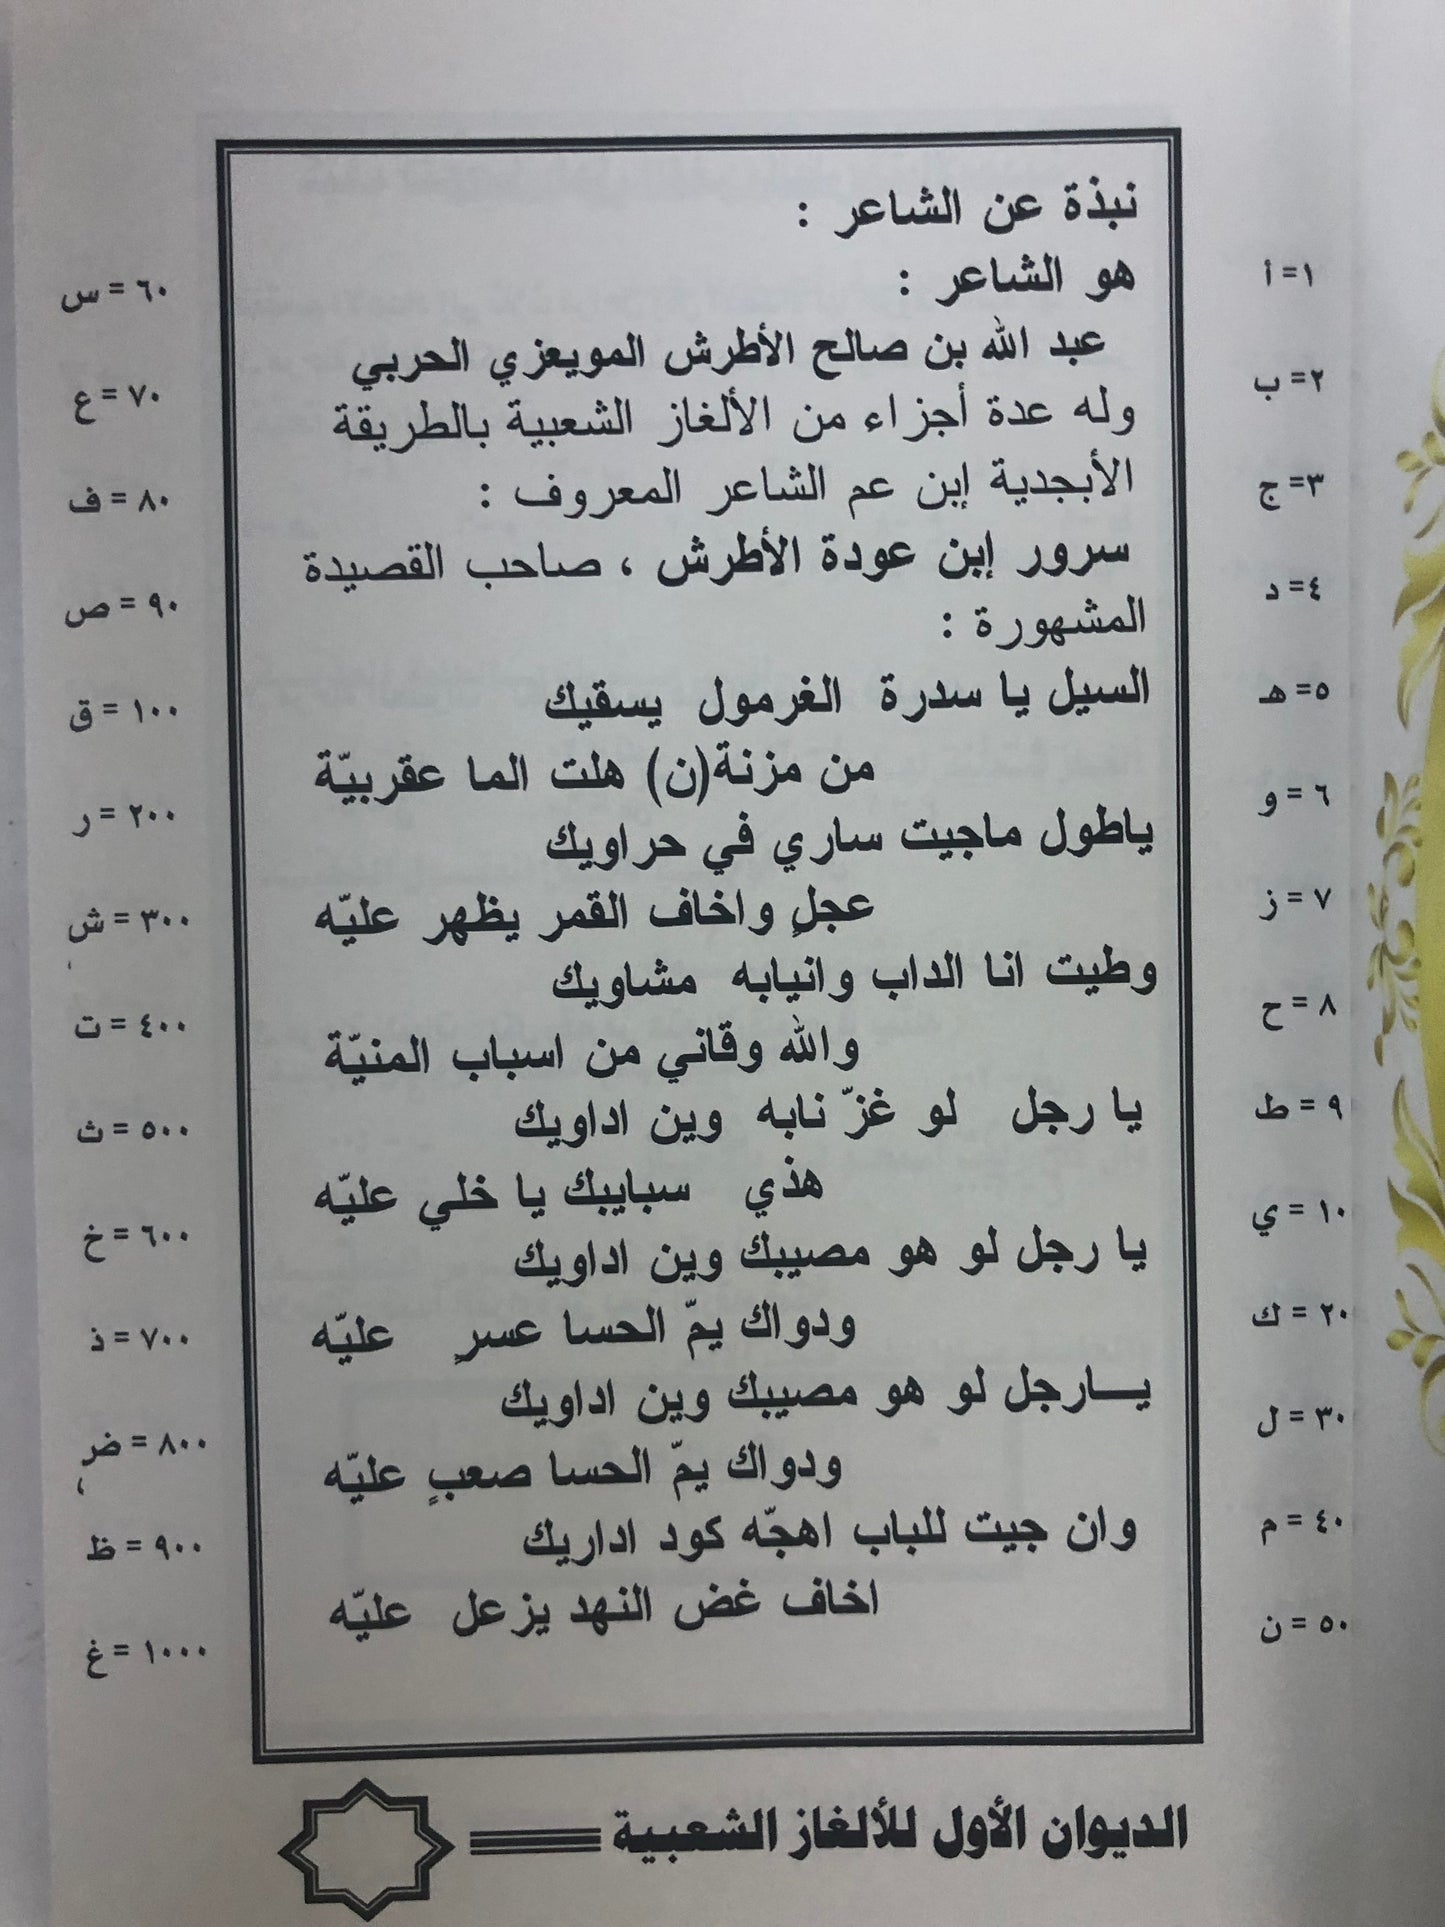 نبذة عن الشاعر :
هو الشاعر :
عبد الله بن صالح الأطرش المويعزي الحربي
وله عدة أجزاء من الألغاز الشعبية بالطريقة
الأبجدية إبن عم الشاعر المعروف :
سرور إبن عودة الأطرش ، صاحب القصيدة
المشهورة :
السيل يا سدرة الغرمول يسقيك
من مزنة(ن) هلت الما عقربيّة
ياطول ماجيت ساري في حراويك
عجلٍ واخاف القمر يظهر عليّه
وطيت انا الداب وانيابه مشاويك
والله وقاني من اسباب المنيّة
يا رجل لو غزّ نابه وين اداويك
هذي سبايبك يا خلي عليّه
يا رجل لو هو مصيبك وين اداويك
ودواك يمّ الحسا عسرٍ عليّه
يــارجل لو هو مصيبك وين اداويك
ودواك يمّ الحسا صعبٍ عليّه
وان جيت للباب اهجّه كود اداريك
اخاف غض النهد يزعل عليّه
١= أ
٢= ب
٣= ج
٤= د
٥= هـ
٦ = و
٧ = ز
٨ = ح
٩ = ط
١٠ = ي
٢٠ = ك
٣٠ = ل
٤٠ = م
٥٠ = ن
٦٠ = س
٧٠ = ع
٨٠ = ف
٩٠ = ص
١٠٠ = ق
٢٠٠ = ر
٣٠٠ = ش
٤٠٠ = ت
٥٠٠ = ث
٦٠٠ = خ
٧٠٠ = ذ
٨٠٠ = ض
٩٠٠ = ظ
١٠٠٠ = غ
الديوان الأول للألغاز الشعبية